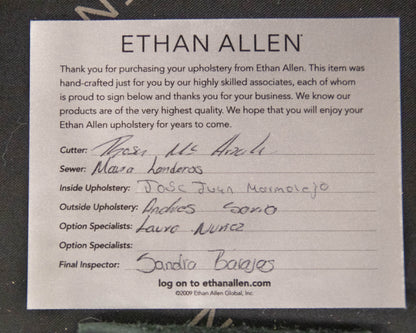 ETHAN ALLEN
Thank you for purchasing your upholstery from Ethan Allen. This item was
hand-crafted just for you by our highly skilled associates, each of whom
is proud to sign below and thanks you for your business. We know our
products are of the very highest quality. We hope that you will enjoy your
Ethan Allen upholstery for years to come.
Cutter:
Sewer: Maura Landeros
Inside Upholstery: Jose Juan Marmolejo
Outside Upholstery: Andres Soria
Option Specialists: Laura Nunez
Option Specialists:
Final Inspector: Sandra Barajas
log on to ethanallen.com
©2009 Ethan Allen Global, Inc.